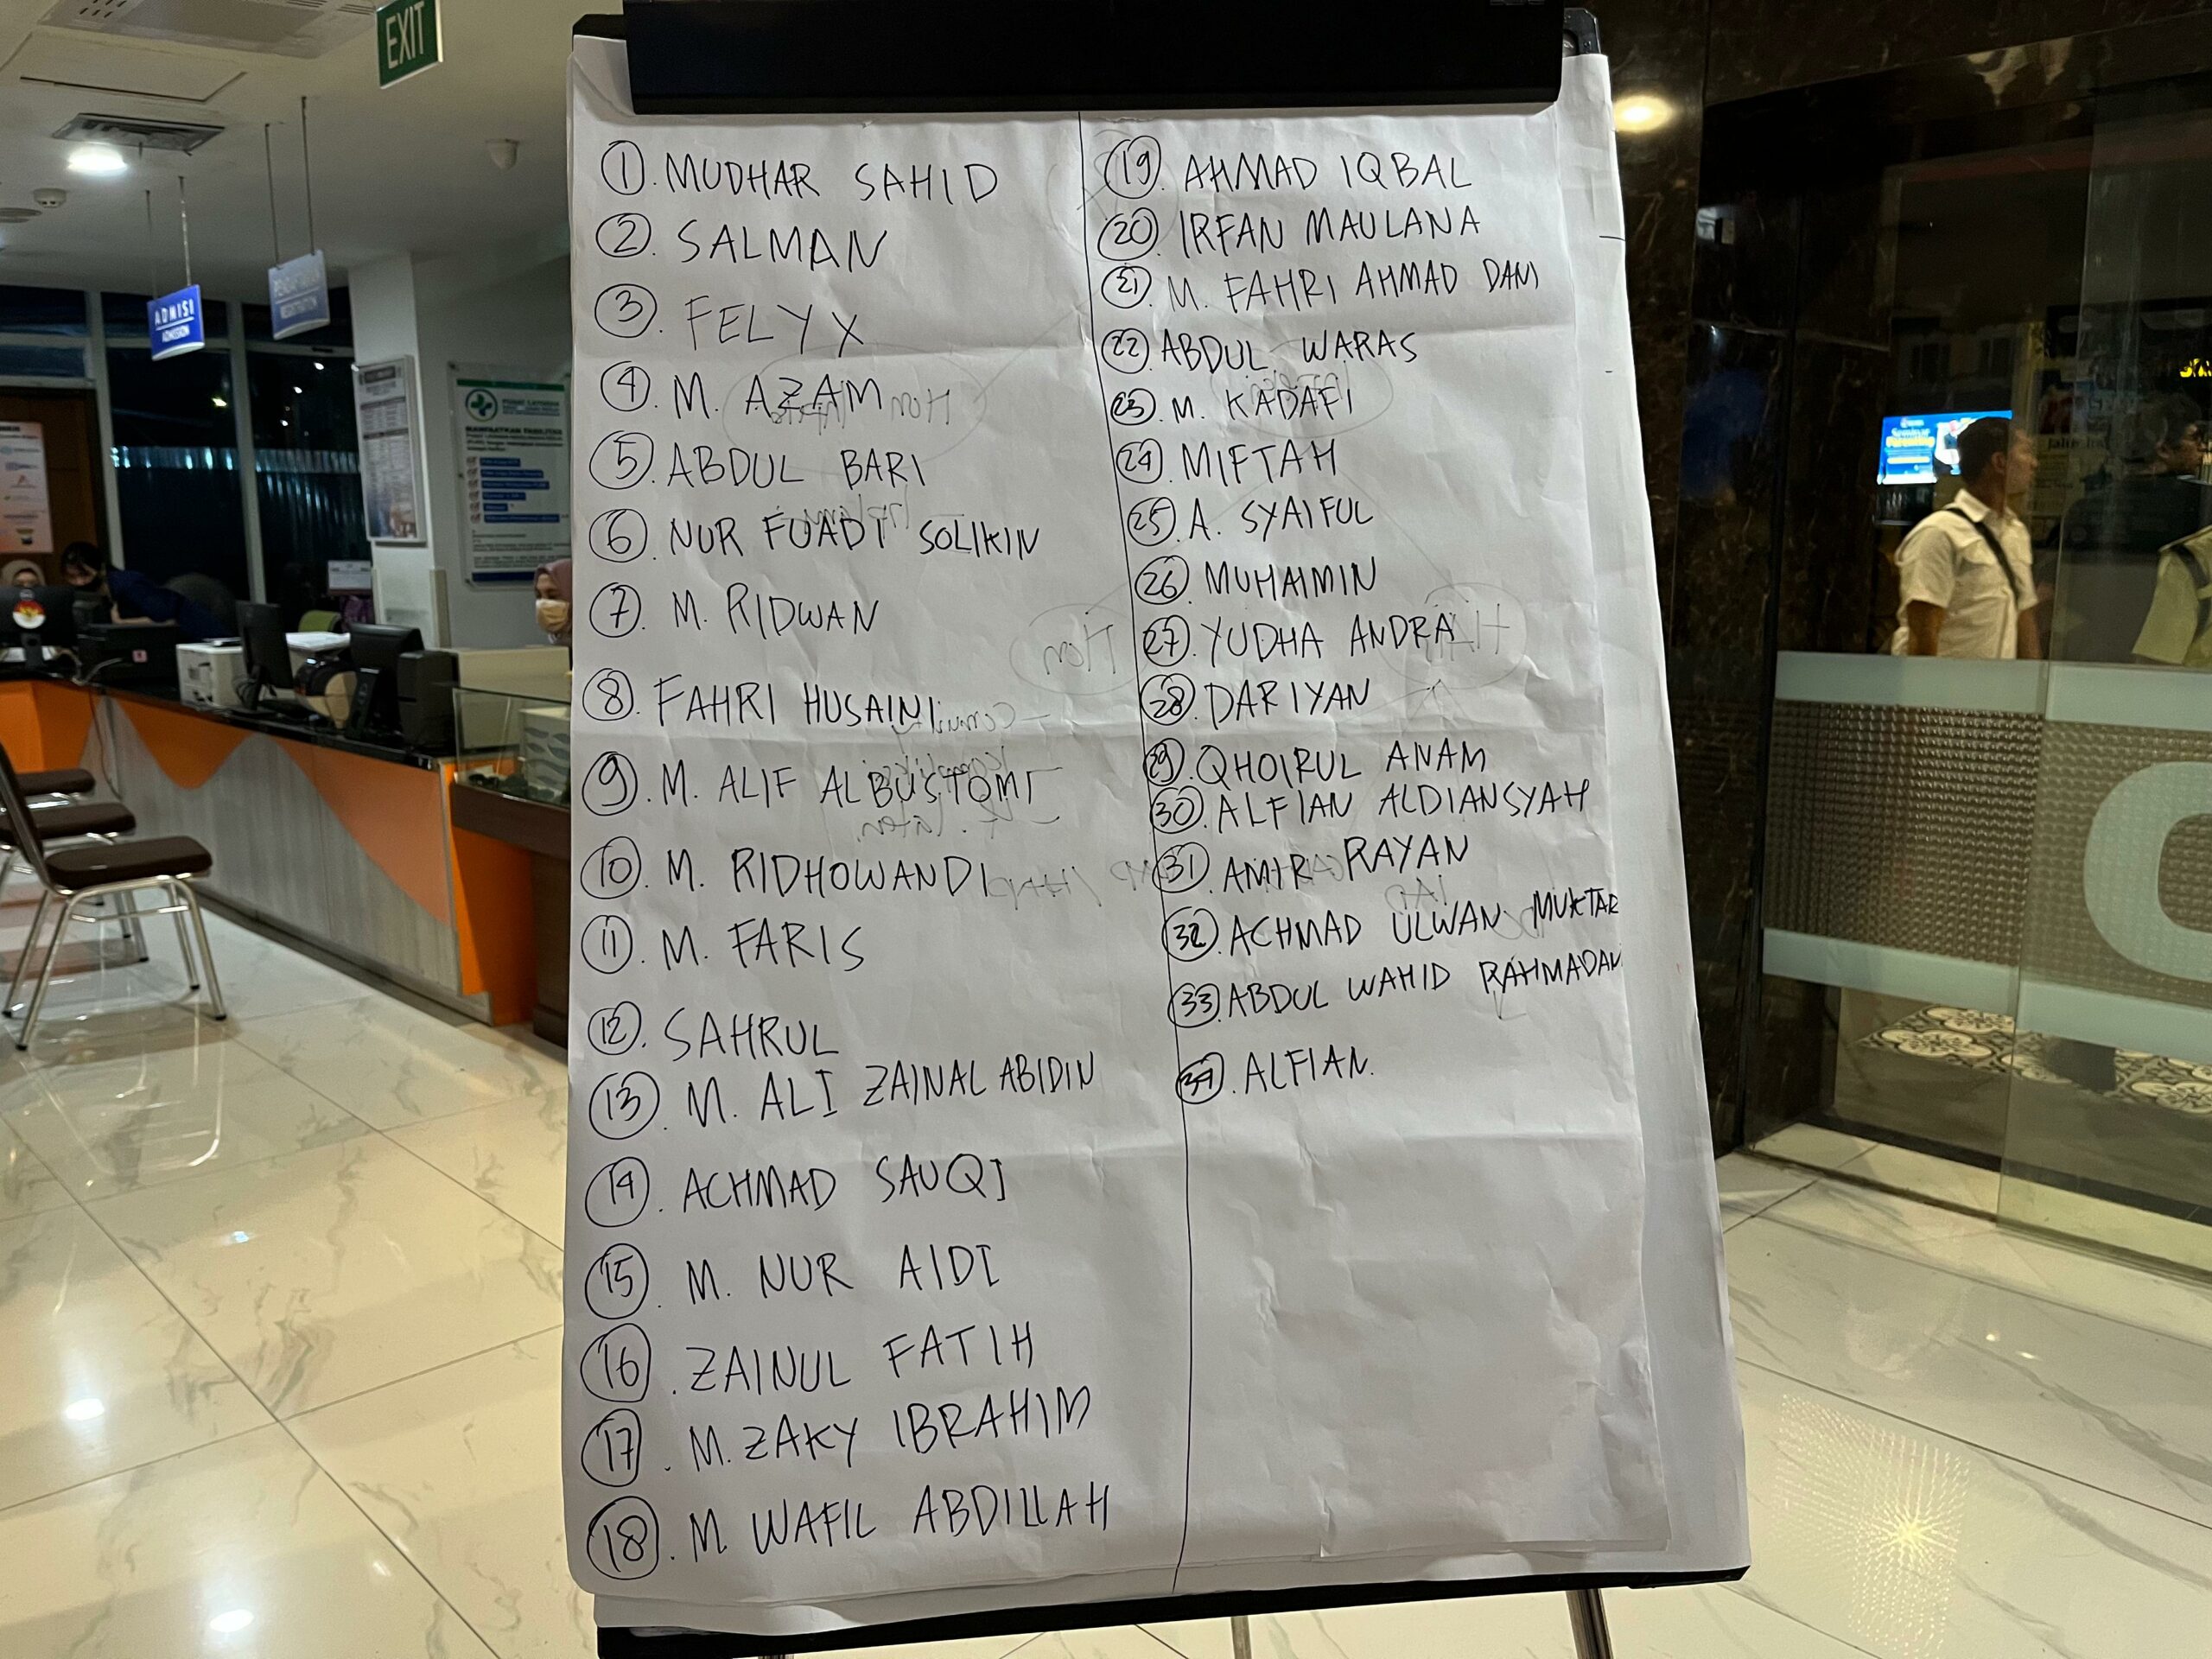 EXIT
ADMISI
① MUDHAR SAHID
② SALMAN
③ FELYX
④ M. AZAM
⑤ ABDUL BARI
⑥ NUR FUADI SOLIKIN
⑦ M. RIDWAN
⑧ FAHRI HUSAINI
⑨ M. ALIF ALBUSTOMI
⑩ M. RIDHOWANDI
⑪ M. FARIS
⑫ SAHRUL
⑬ M. ALI ZAINAL ABIDIN
⑭ ACHMAD SAUQI
⑮ M. NUR AIDI
⑯ ZAINUL FATIH
⑰ M. ZAKY IBRAHIM
⑱ M. WAFIL ABDILLAH
⑲ AHMAD IQBAL
⑳ IRFAN MAULANA
㉑ M. FAHRI AHMAD DANI
㉒ ABDUL WARAS
㉓ M. KADAFI
㉔ MIFTAH
㉕ A. SYAIFUL
㉖ MUHAIMIN
㉗ YUDHA ANDRA
㉘ DARIYAN
㉙ QHOIRUL ANAM
㉚ ALFIAN ALDIANSYAH
㉛ AMIR RAYAN
㉜ ACHMAD ULWAN MUKTAR
㉝ ABDUL WAHID RAHMADAN
㉞ ALFIAN.